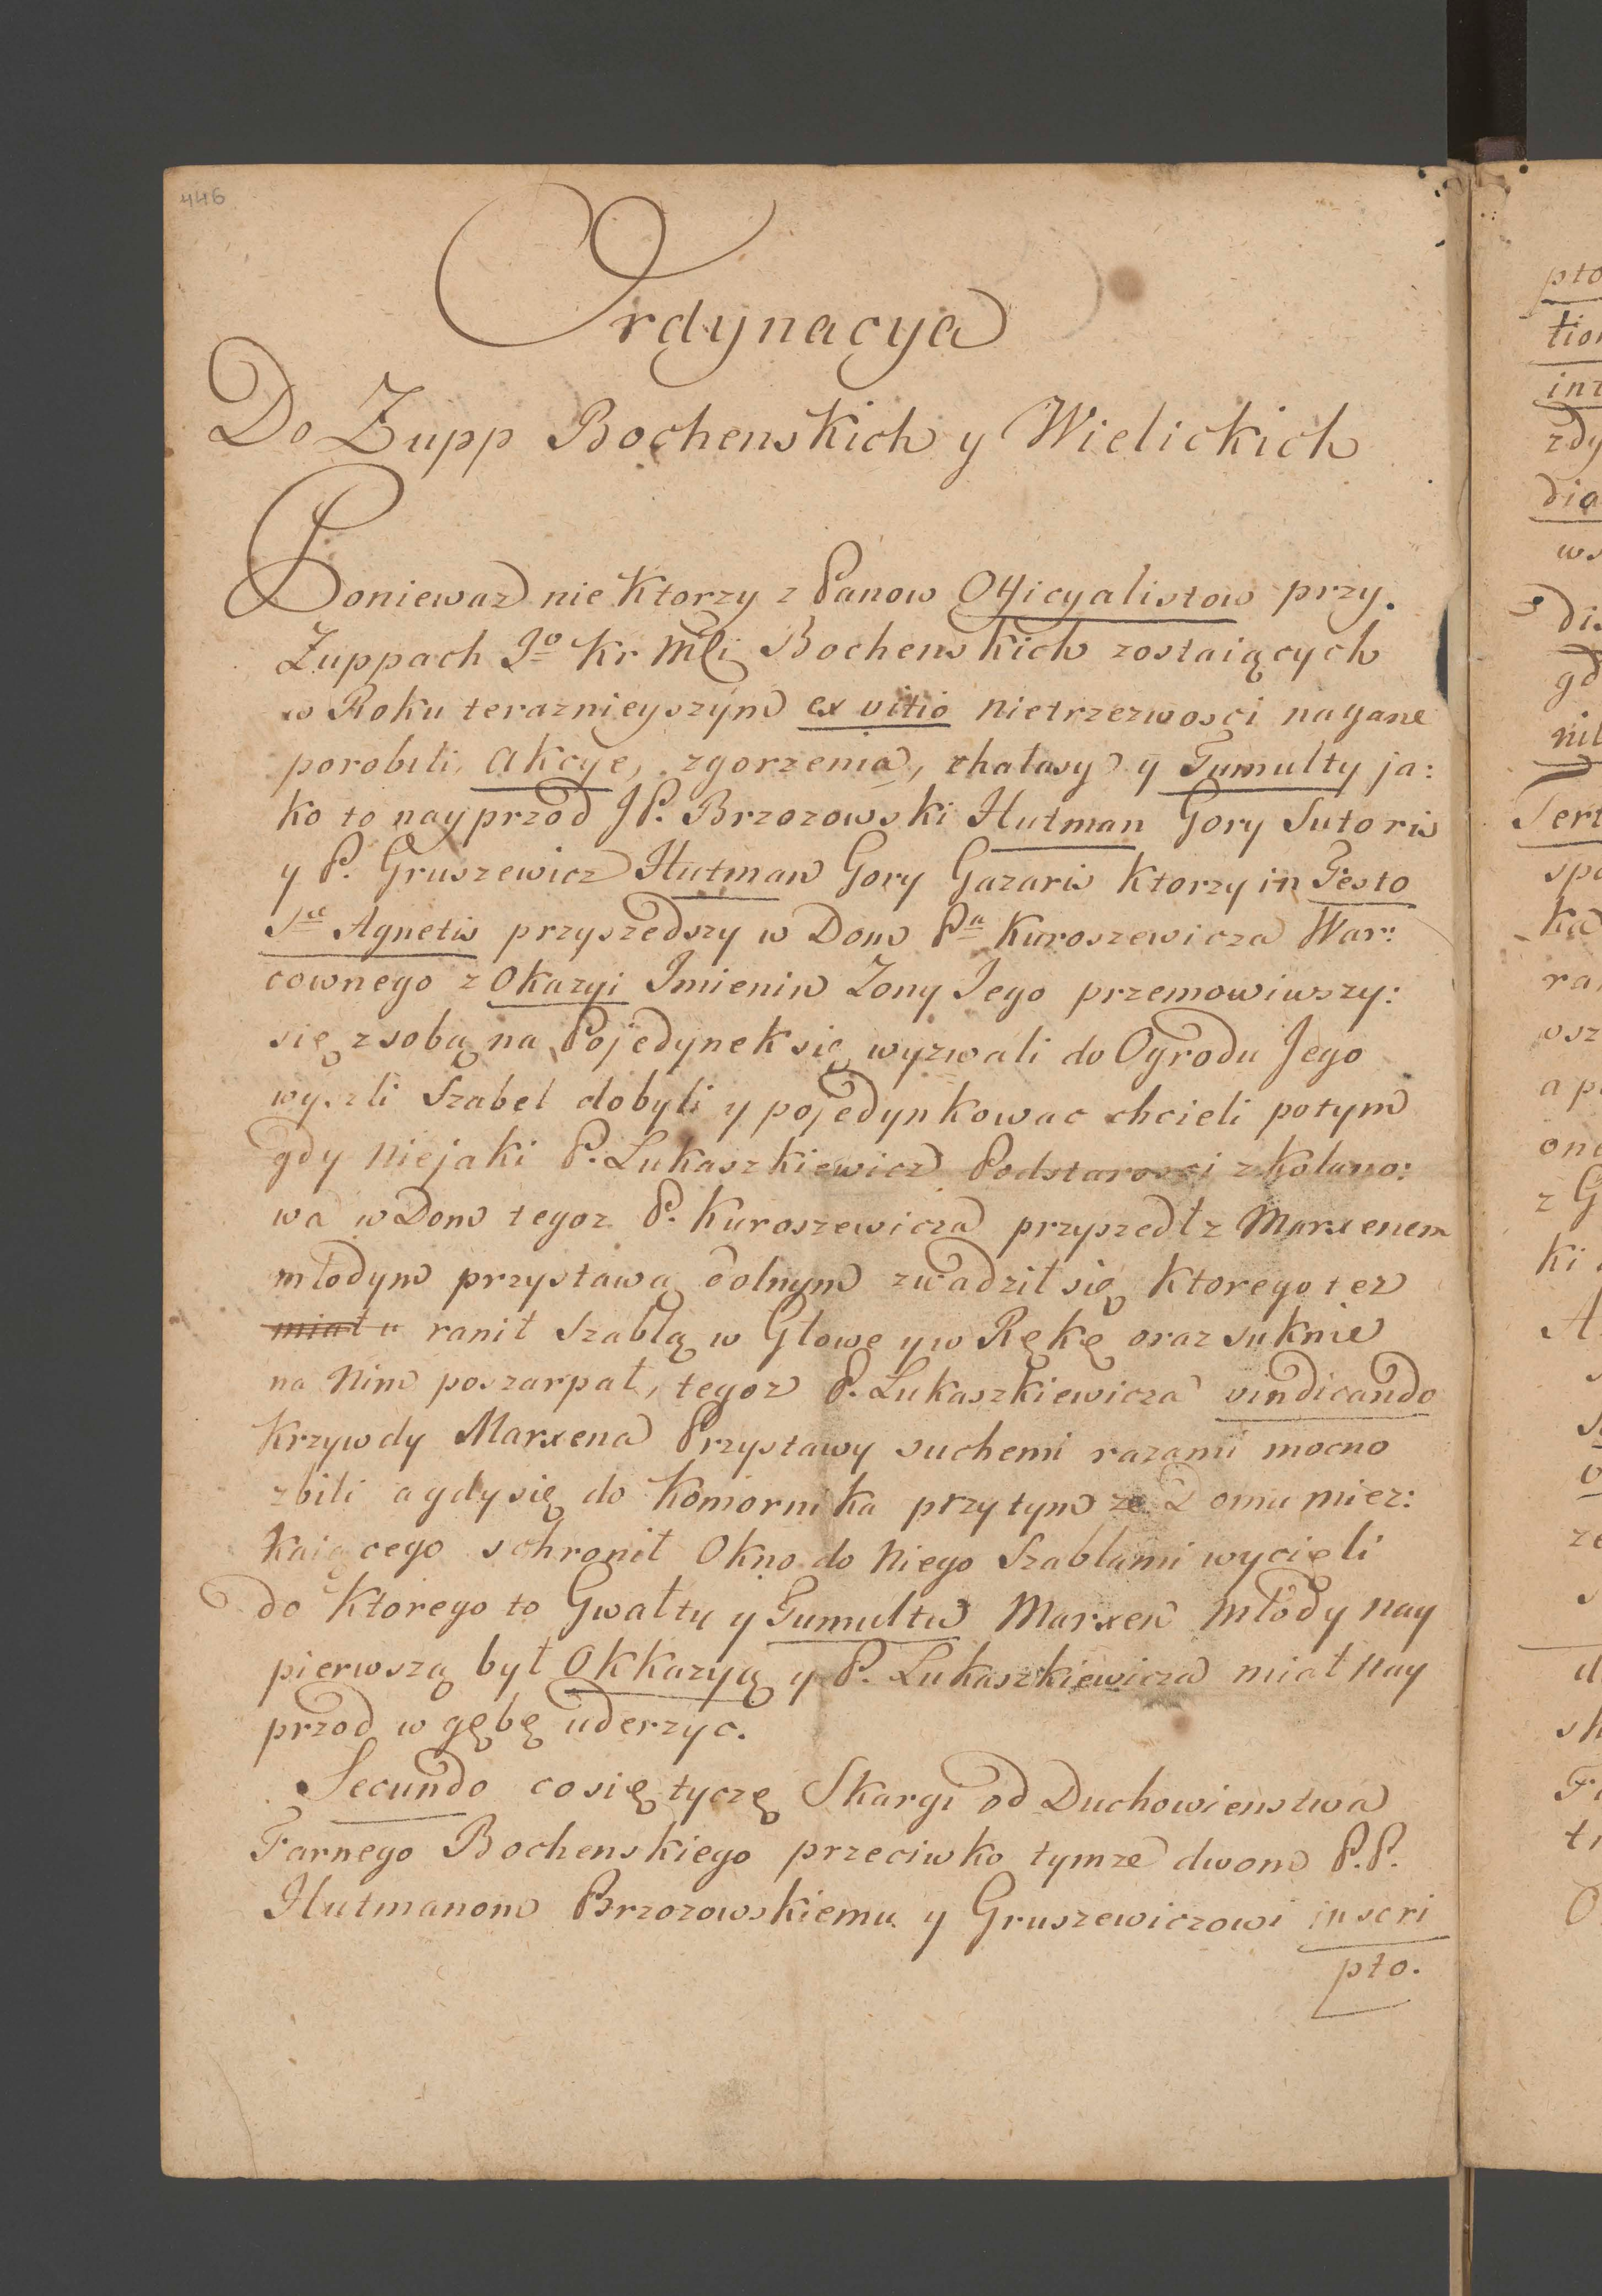 446
Ordynacya
Do Zupp Bochenskich y Wielickich
Poniewaz nie Ktorzy z Panow Officyalistow przy.
Zuppach Jo Kr Mći Bochenskich zostaiących
w Roku teraznieyszym ex vitio nietrzezwosci nagane
porobili, akcye, zgorzenia, chałasy y Tumulty ja:
ko to nayprzod JP. Brzozowski Hutman Gory Sutoris
y P. Gruszewicz Hutman Gory Gazaris Ktorzy in Festo
Sae Agnetis przyszedszy w Dom Pa Kuroszewicza War:
cownego z Okazyi Imienin Zony Jego przemowiwszy:
się z sobą na Pojedynek się wyzwali do Ogrodu Jego
wyszli Szabel dobyli y pojedynkowac chcieli potym
gdy niejaki P. Lukaszkiewicz Podstarosci z Kolano:
wa w Dom tegoz P. Kuroszewicza przyszedł z Marxenem
młodym przystawą dolnym zwadził się Ktorego tez
miał u ranił Szablą w Głowe y w Rękę oraz suknie
na Nim poszarpał, tegoz P. Lukaszkiewicza vindicando
Krzywdy Marxena Przystawy suchemi razami mocno
zbili a gdy się do Komornika przy tym ze Domu miez:
kaiącego schronił Okno do Niego Szablami wycięli
do Ktorego to Gwałtu y Tumultu Marxen młody nay
pierwszą był Okkazyą y P. Lukaszkiewicza miał nay
przod w gębę uderzyc.
Secundo co się tyczę Skargi od Duchowienstwa
Farnego Bochenskiego przeciwko tymze dwom P.P.
Hutmanom Brzozowskiemu y Gruszewiczowi in scri
pto.
pto
tion
int
zdy
dia
ws
dis
gd
nil
Sert
spo
ka
ran
osz
a p
one
z G
ki